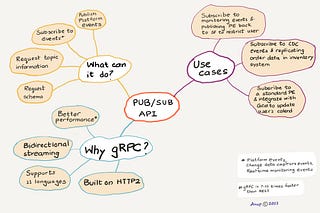 Publish
Platform
Events
Subscribe to
events*
Request topic
information
Request
schema
What can
it do?
PUB/SUB
API
Use
cases
Subscribe to
monitoring events &
publishing PE back
to SF to restrict user
Subscribe to CDC
events & replicating
order data in inventory
system
Subscribe
to a standard PE
& integrate with
to update
users
Why gRPC?
Better
performance*
Bidirectional
streaming
Supports
11 languages
Built on HTTP2
* Platform Events,
Change data capture events,
Real-time monitoring events
# gRPC is 7-10 times faster
than REST
©2022